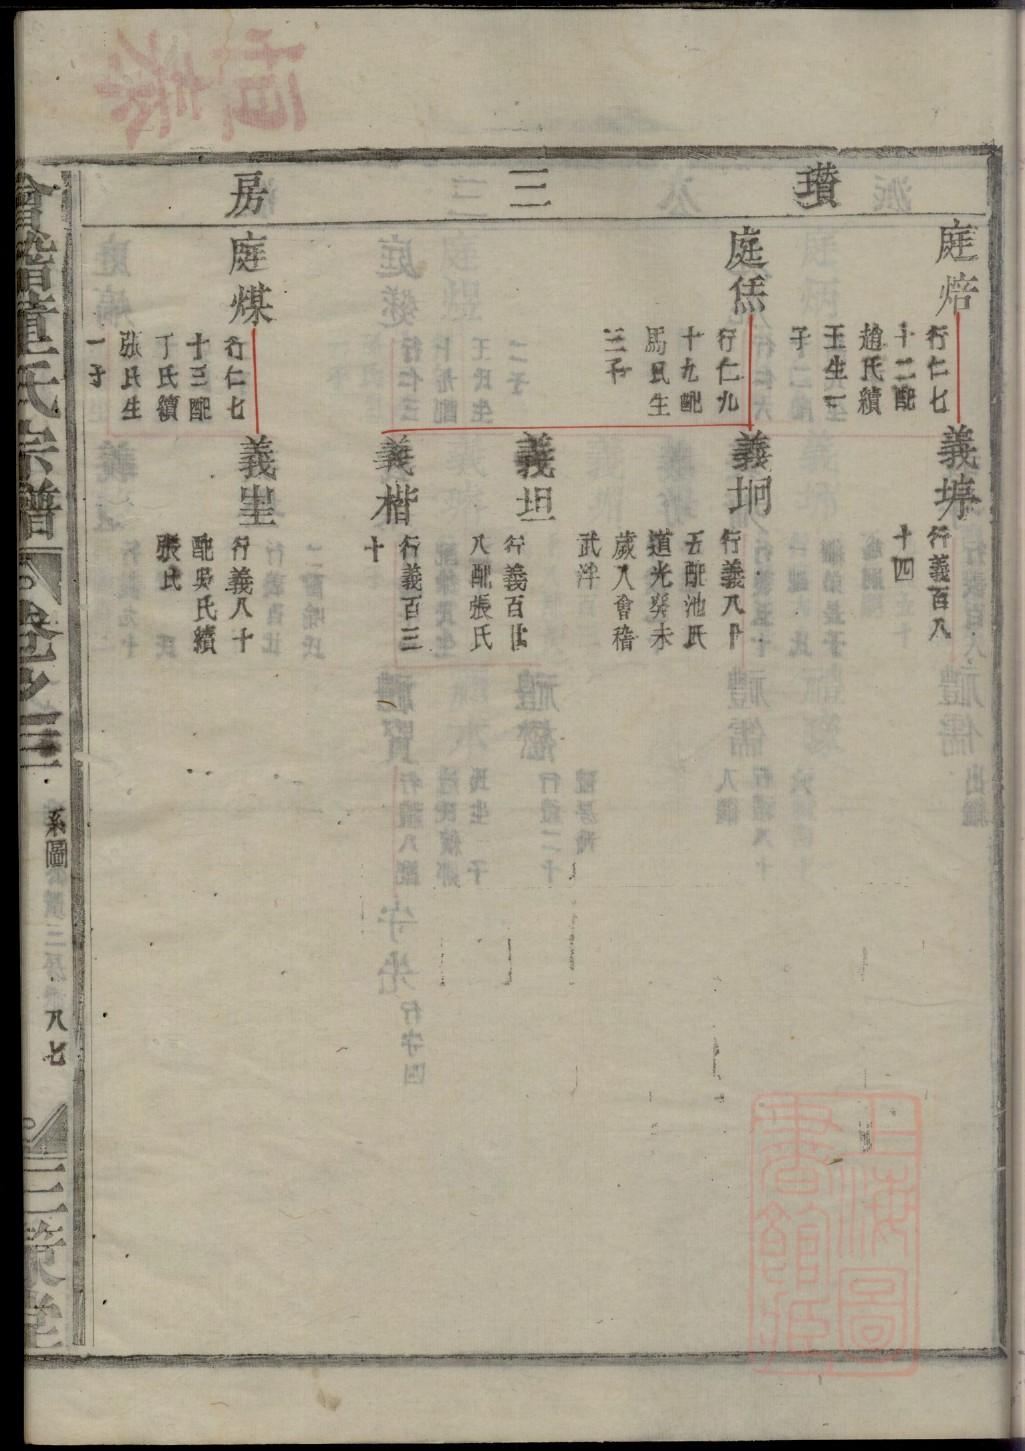 瓚三房
庭焙
行仁七
十二配
趙氏續
王生一
子
義塝
行義百八
十四
庭恁
行仁九
十九配
馬氏生
三子
義坰
行義八十
五配池氏
道光癸未
歲入會稽
武泮
義坦
行義百廿
八配張氏
義楷
行義百三
十
庭煤
行仁七
十三配
丁氏續
張氏生
一子
行義八十
配吳氏續
張氏
會稽董氏宗譜
卷之三
系圖
瓚三房
八七
三策堂
上海圖
書館藏